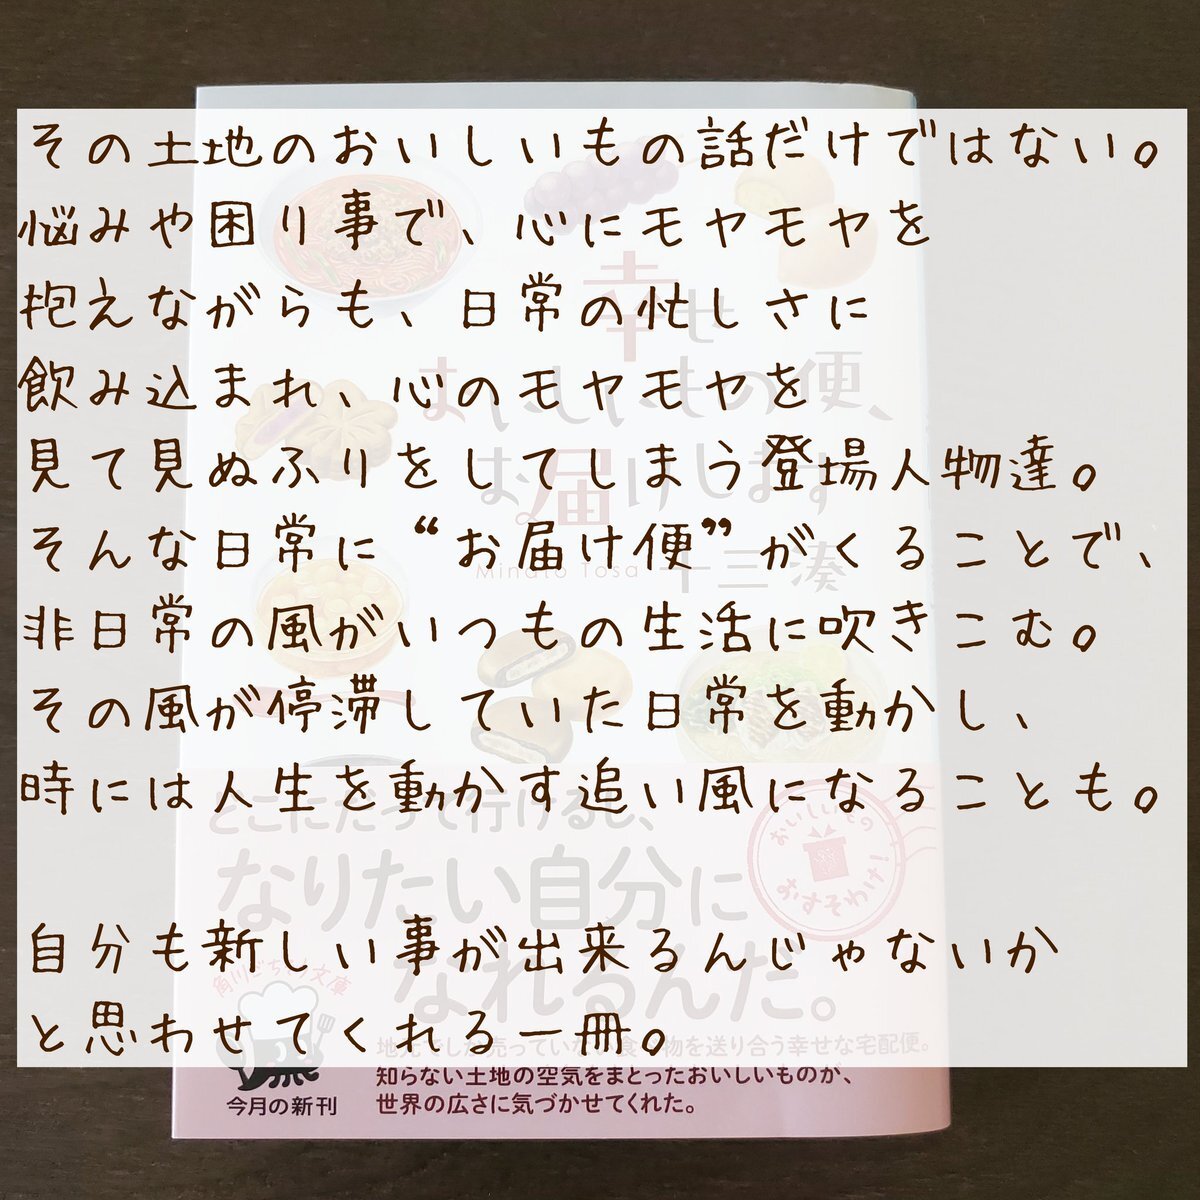 その土地のおいしいもの話だけではない。
悩みや困り事で、心にモヤモヤを
抱えながらも、日常の忙しさに
飲み込まれ、心のモヤモヤを
見て見ぬふりをしてしまう登場人物達。
そんな日常に“お届け便”がくることで、
非日常の風がいつもの生活に吹きこむ。
その風が停滞していた日常を動かし、
時には人生を動かす追い風になることも。
自分も新しい事が出来るんじゃないか
と思わせてくれる一冊。
幸せ
おいしいもの便、
お届けします
Minato Tosa
十三湊
どこにだって行けるし、
なりたい自分に
なれるんだ。
おいしいもの
おすそわけ!
角川ごちそう文庫
今月の新刊
地元でしか売っていない食べ物を送り合う幸せな宅配便。
知らない土地の空気をまとったおいしいものが、
世界の広さに気づかせてくれた。